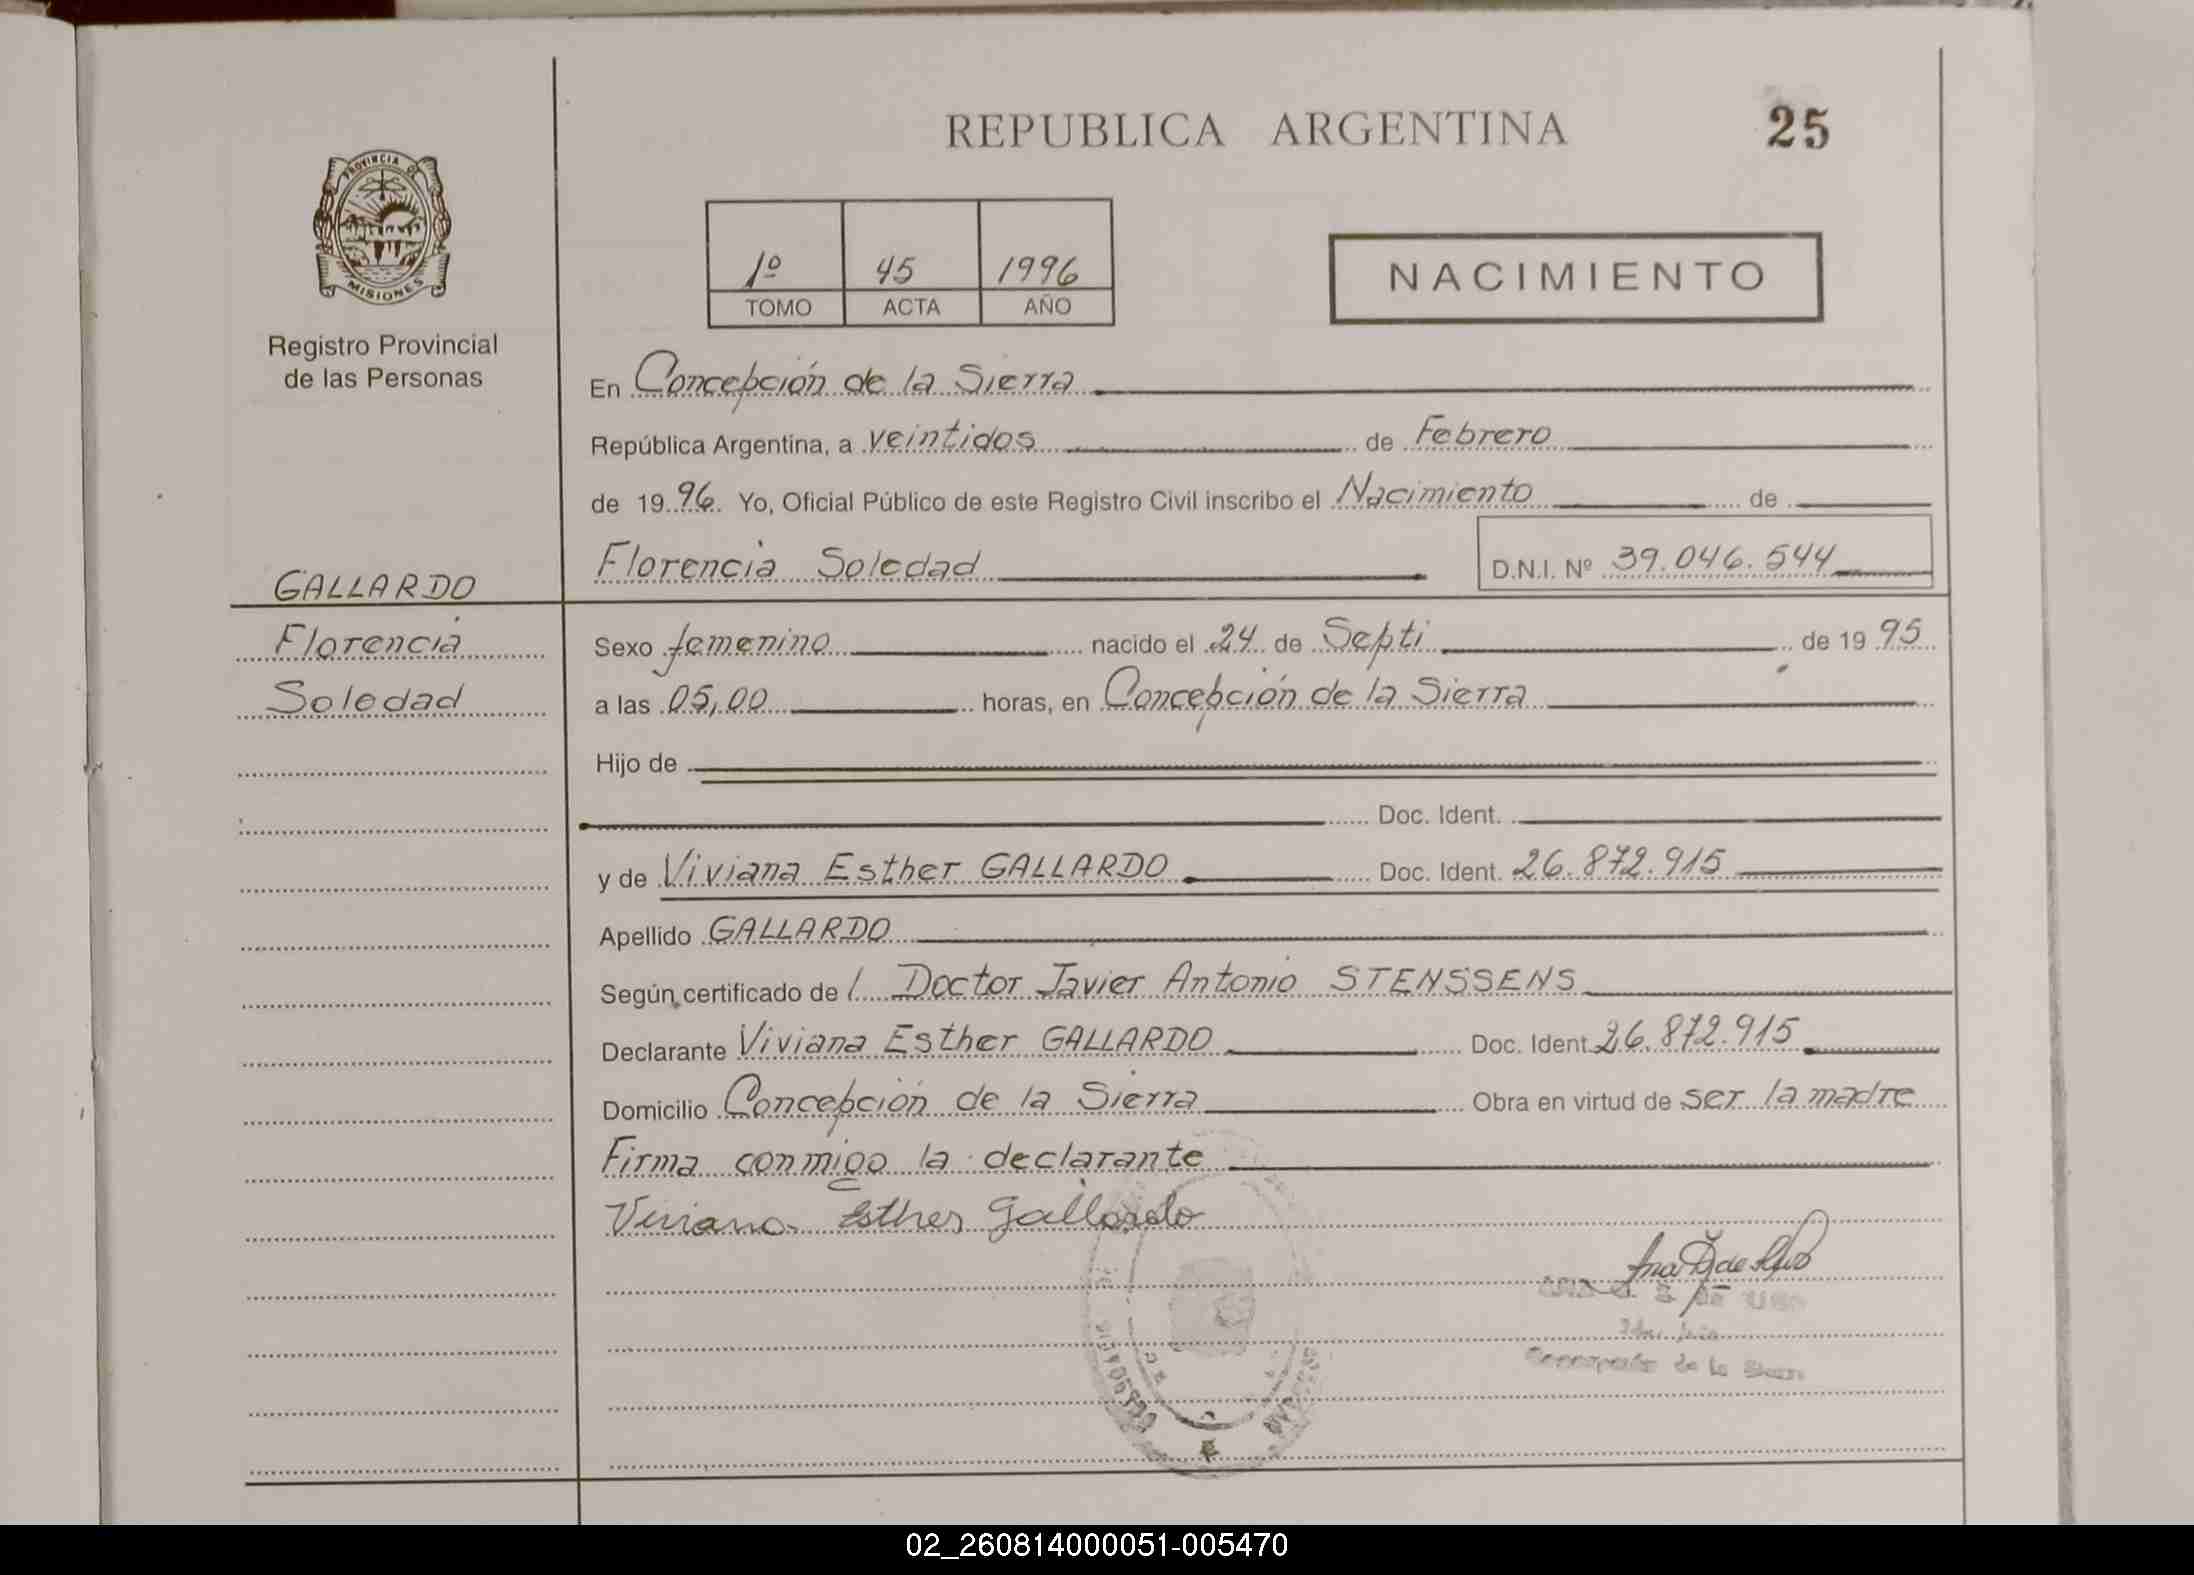 REPUBLICA ARGENTINA
25
PROVINCIA DE
MISIONES
Registro Provincial
de las Personas
1º 45 1996
TOMO ACTA AÑO
NACIMIENTO
En Concepción de la Sierra
República Argentina, a veintidos de Febrero
de 1996. Yo, Oficial Público de este Registro Civil inscribo el Nacimiento de
Florencia Soledad D.N.I. Nº 39.046.544
GALLARDO
Florencia
Soledad
Sexo femenino nacido el 24 de Septi de 1995
a las 05,00 horas, en Concepción de la Sierra
Hijo de
Doc. Ident.
y de Viviana Esther GALLARDO Doc. Ident. 26.872.915
Apellido GALLARDO
Según certificado de l Doctor Javier Antonio STENSSENS
Declarante Viviana Esther GALLARDO Doc. Ident. 26.872.915
Domicilio Concepción de la Sierra Obra en virtud de ser la madre
Firma conmigo la declarante
Viviana Esther Gallardo
de la
02_260814000051-005470